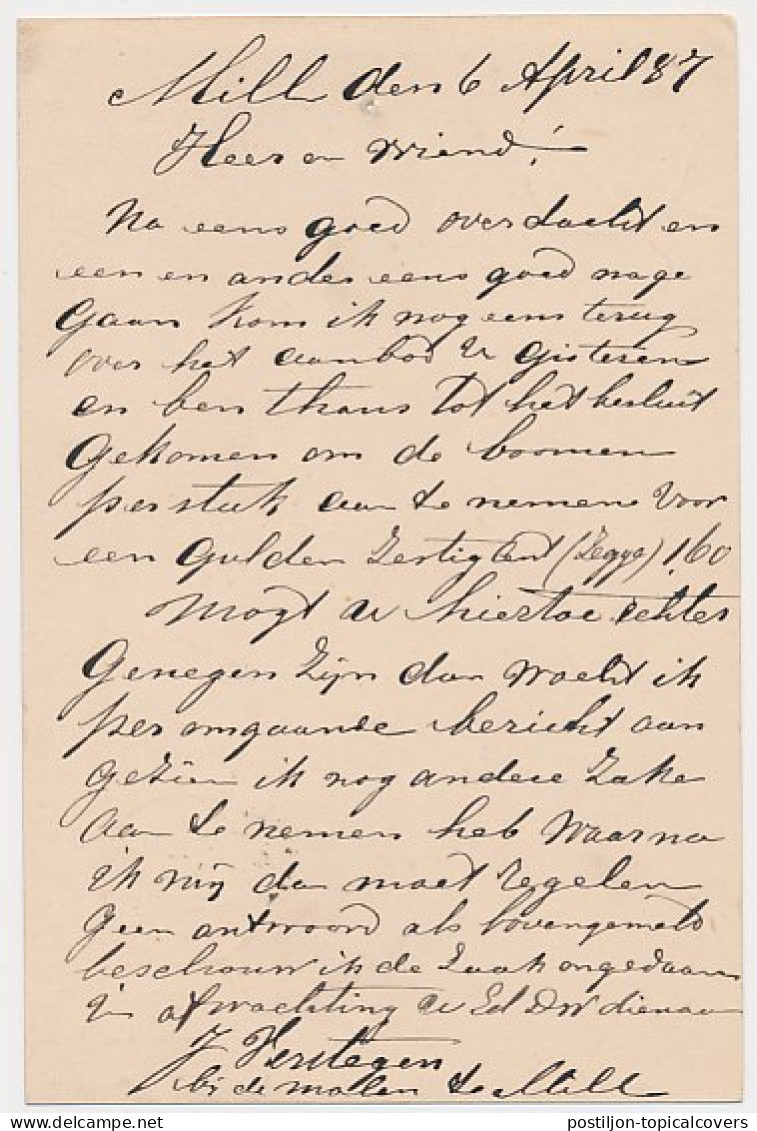 Mill den 6 April 87
Heer en vriend!
Na eens goed overdacht en
een en ander eens goed nage
Gaan kom ik nog eens terug
over het aanbod U gisteren
en ben thans tot het besluit
Gekomen om de boomen
per stuk aan te nemen voor
een Gulden Zestig Cent (Zegge) 1,60
Mogt u hiertoe echter
Genegen Zijn dan wacht ik
per omgaande bericht aan
gezien ik nog andere Zake
aan te nemen heb waarna
ik mij dan moet regelen
Geen antwoord als bovengemeld
beschouw ik de Zaak ongedaan
In afwachting u Ed DW dienaar
J Verstegen
bij de molen te Mill
postiljon-topicalcovers